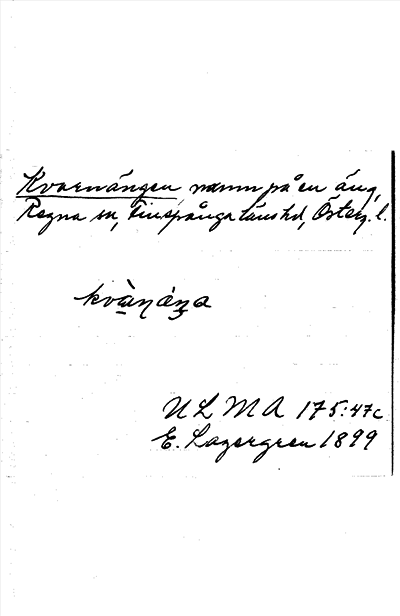 Kvarnängen, namn på en äng,
Regna sn, Finspånga läns hd, Österg. l.
kvàŋáŋa
ULMA 175:47c
E. Lagergren 1899